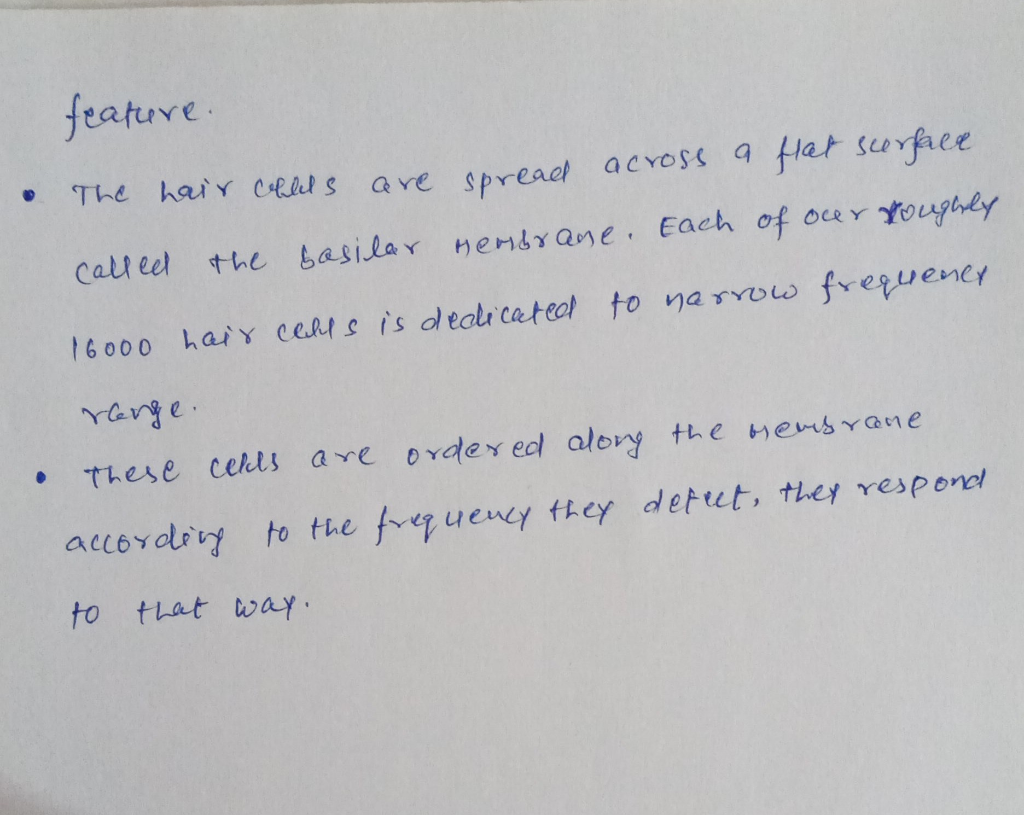 feature.
• The hair cells are spread across a flat surface
called the basilar membrane. Each of our roughly
16000 hair cells is dedicated to narrow frequency
range.
• These cells are ordered along the membrane
according to the frequency they detect, they respond
to that way.